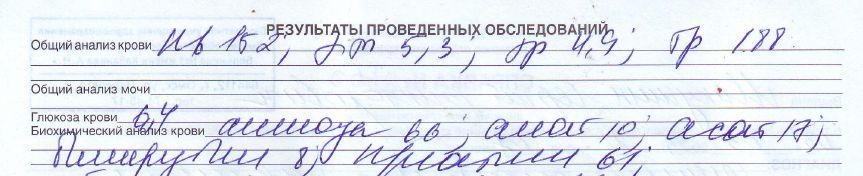 РЕЗУЛЬТАТЫ ПРОВЕДЕННЫХ ОБСЛЕДОВАНИЙ
Общий анализ крови Нв 152, эт 5,3; эр 4,4; Тр 188.
Общий анализ мочи
Глюкоза крови 6,4
Биохимический анализ крови амилаза 66; алат 10; асат 17;
Билирубин 8; креатин 61;